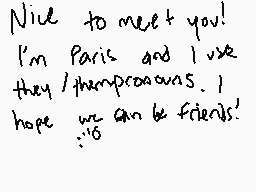 Nice to meet you!
I'm Paris and I use
they/thempronouns. I
hope we can be friends!
:"D